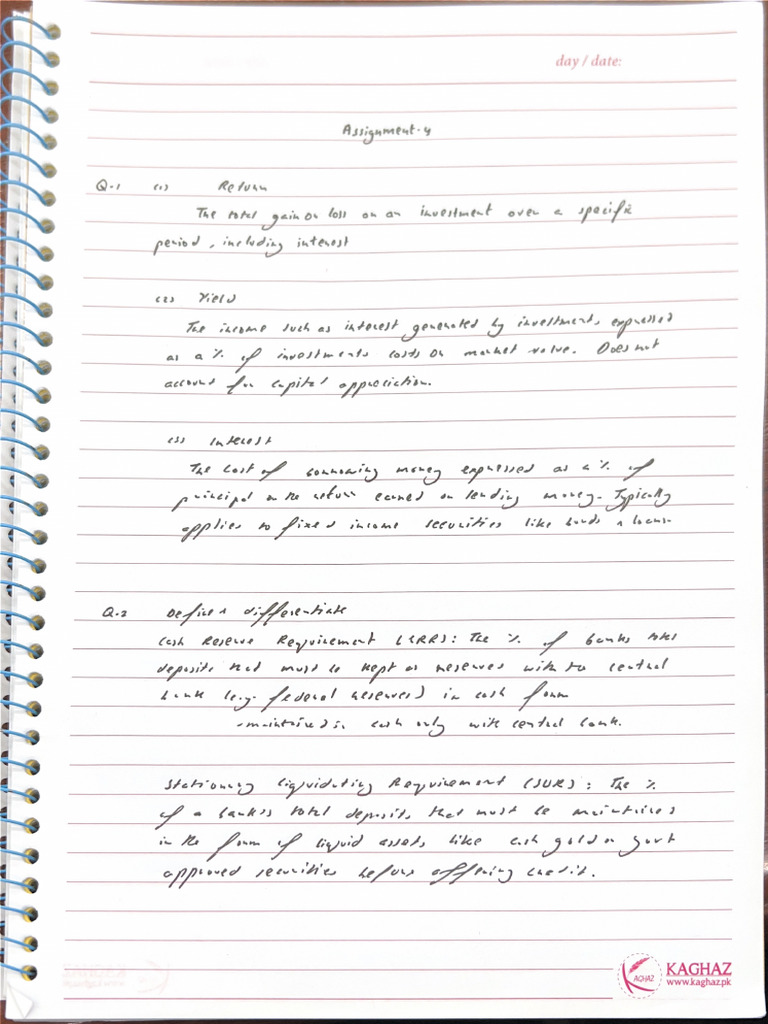 day / date:
Assignment-4
Q.1 (1) Return
The total gain or loss on an investment over a specific
period, including interest
(2) Yield
The income such as interest generated by investments, expressed
as a % of investments costs or market value. Does not
account for capital appreciation.
(3) Interest
The cost of borrowing money expressed as a % of
principal or the return earned on lending money. Typically
applies to fixed income securities like bonds & loans.
Q.2 Define & differentiate
Cash Reserve Requirement (CRR): The % of banks total
deposits that must be kept as reserves with the central
bank (e.g. federal reserves) in cash form
-maintained in cash only with central bank.
Stationary liquidating Requirement (SLR): The %
of a bank's total deposits that must be maintained
in the form of liquid assets like cash gold or govt
approved securities before offering credit.
KAGHAZ
KAGHAZ
www.kaghaz.pk